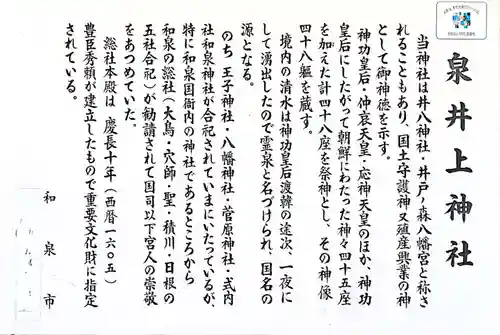 泉井上神社
当神社は井八神社・井戸ノ森八幡宮と称さ
れることもあり、国土守護神又殖産興業の神
として御神徳を示す。
神功皇后・仲哀天皇・応神天皇のほか、神功
皇后にしたがって朝鮮にわたった神々四十五座
を加えた計四十八座を祭神とし、その神像
四十八軀を蔵す。
境内の清水は神功皇后渡韓の途次、一夜に
して湧出したので霊泉と名づけられ、国名の
源となる。
のち王子神社・八幡神社・菅原神社・式内
社和泉神社が合祀されていまにいたっているが、
特に和泉国衙内の神社であるところから
和泉の総社(大鳥・穴師・聖・積川・日根の
五社合祀)が勧請されて国司以下宮人の崇敬
をあつめていた。
総社本殿は慶長十年(西暦一六〇五)
豊臣秀頼が建立したもので重要文化財に指定
されている。
和泉市